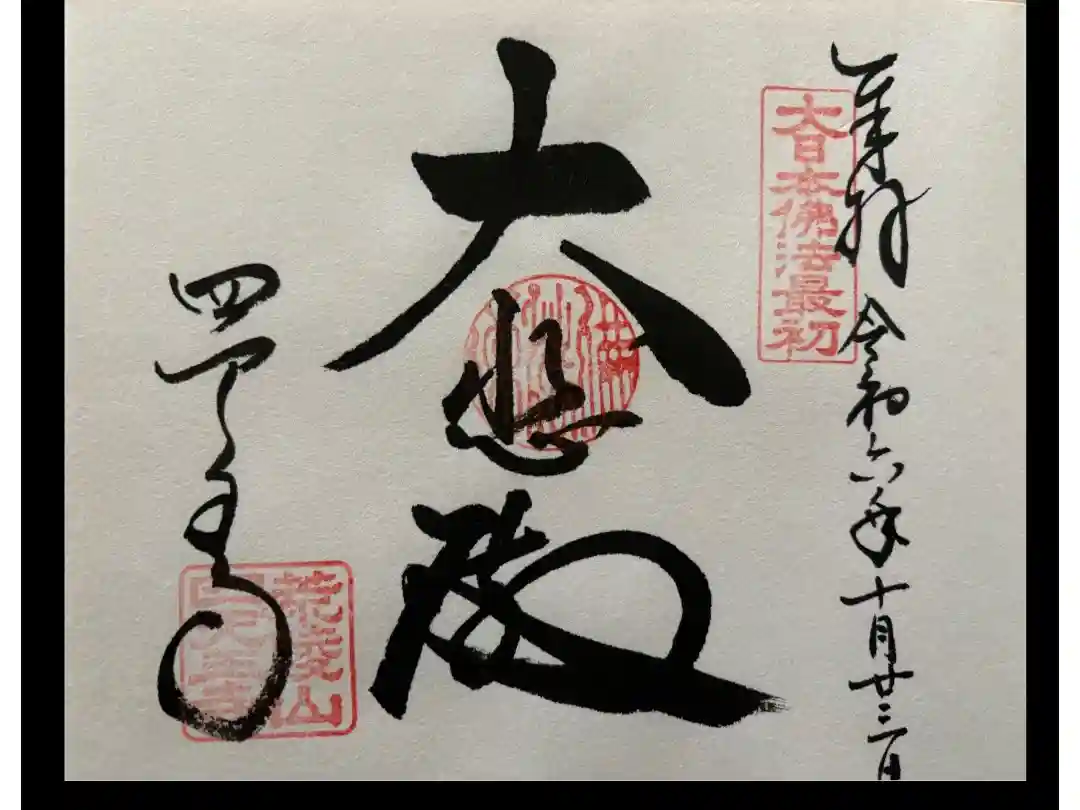 奉拝 令和六年十月廿三日
大日本佛法最初
大悲殿
四天王寺
荒陵山
四天王寺